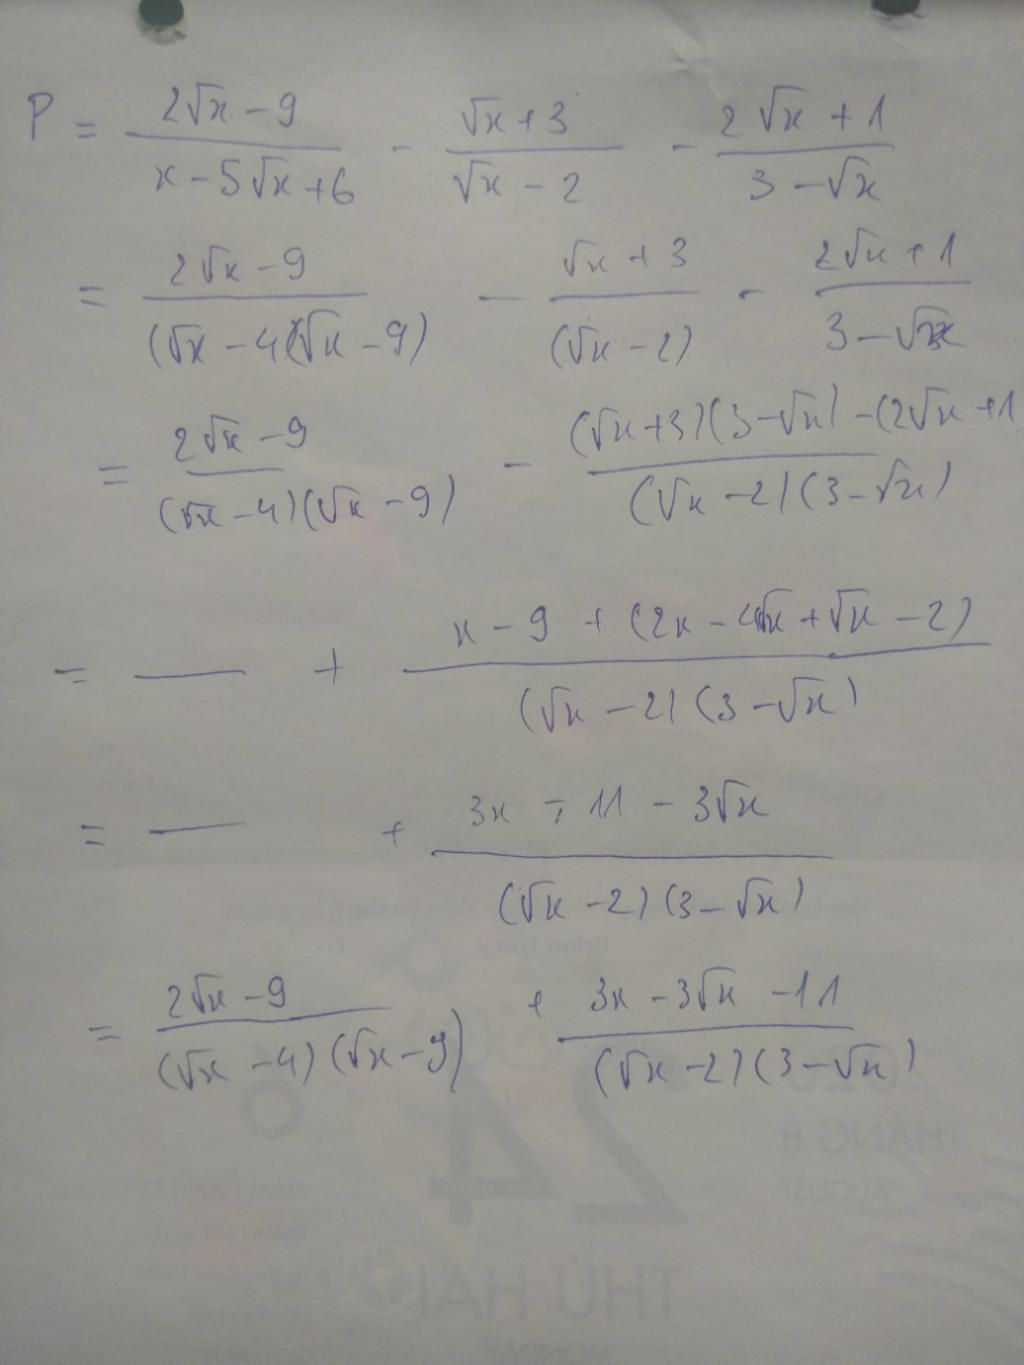 P = \frac{2\sqrt{x} - 9}{x - 5\sqrt{x} + 6} - \frac{\sqrt{x} + 3}{\sqrt{x} - 2} - \frac{2\sqrt{x} + 1}{3 - \sqrt{x}}
= \frac{2\sqrt{x} - 9}{(\sqrt{x} - 4)(\sqrt{x} - 9)} - \frac{\sqrt{x} + 3}{(\sqrt{x} - 2)} - \frac{2\sqrt{x} + 1}{3 - \sqrt{x}}
= \frac{2\sqrt{x} - 9}{(\sqrt{x} - 4)(\sqrt{x} - 9)} - \frac{(\sqrt{x} + 3)(3 - \sqrt{x}) - (2\sqrt{x} + 1}{(\sqrt{x} - 2)(3 - \sqrt{x})}
= — + \frac{x - 9 + (2x - 4\sqrt{x} + \sqrt{x} - 2)}{(\sqrt{x} - 2)(3 - \sqrt{x})}
= — + \frac{3x - 11 - 3\sqrt{x}}{(\sqrt{x} - 2)(3 - \sqrt{x})}
= \frac{2\sqrt{x} - 9}{(\sqrt{x} - 4)(\sqrt{x} - 9)} + \frac{3x - 3\sqrt{x} - 11}{(\sqrt{x} - 2)(3 - \sqrt{x})}
Brian Tracy
24
THÁNG 8
AUGUST
THỨ HAI
MONDAY